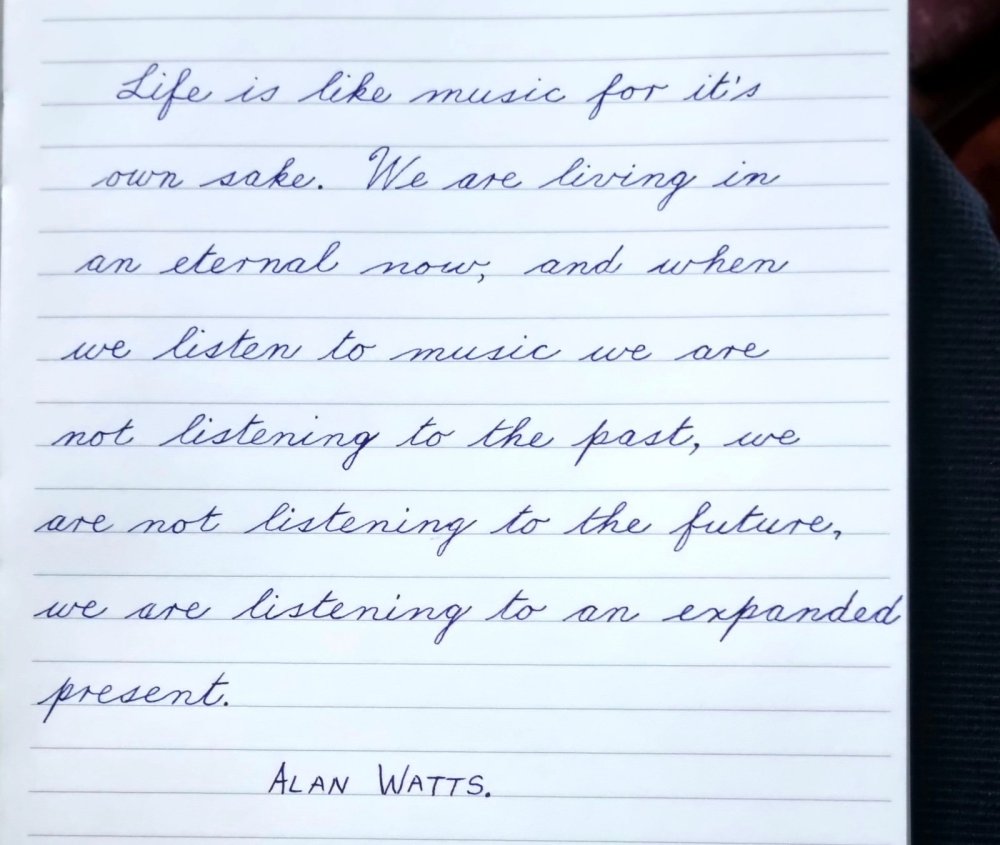 Life is like music for it's
own sake. We are living in
an eternal now, and when
we listen to music we are
not listening to the past, we
are not listening to the future,
we are listening to an expanded
present.
ALAN WATTS.